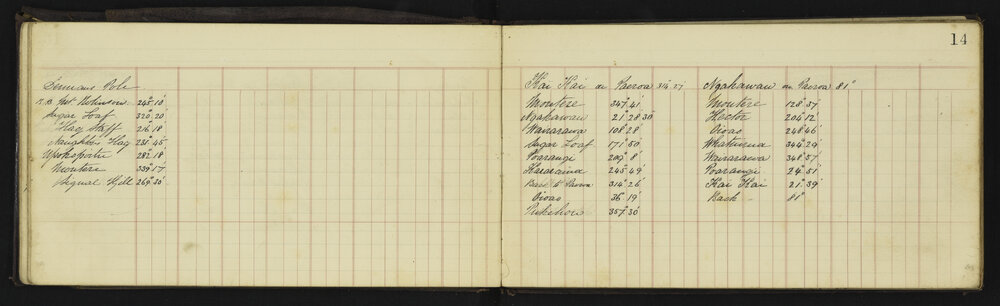 14
Germans Pole
Mt Robinson 245° 10'
Sugar Loaf 320° 20'
Flag Staff 216° 18'
Naughton Flag 231° 45'
282° 18'
Moutere 339° 17'
Signal Hill 269° 30'
Kai Kai on Paeroa 314 27
Moutere 347° 41'
Ngakawau 21° 28 30
Wairarawa 108° 28'
Sugar Loaf 171° 50'
Poarangi 209° 8'
Kararama 245° 49'
Back to Paeroa 314° 26'
Oioao 36° 19'
Pukehou 357° 30'
Ngakawau on Paeroa 81°
Moutere 128° 57'
Hector 204° 12'
Oioao 248° 46'
344° 29'
Wairarawa 348° 57'
Poarangi 24° 51'
Kai Kai 21° 39'
Back 81°